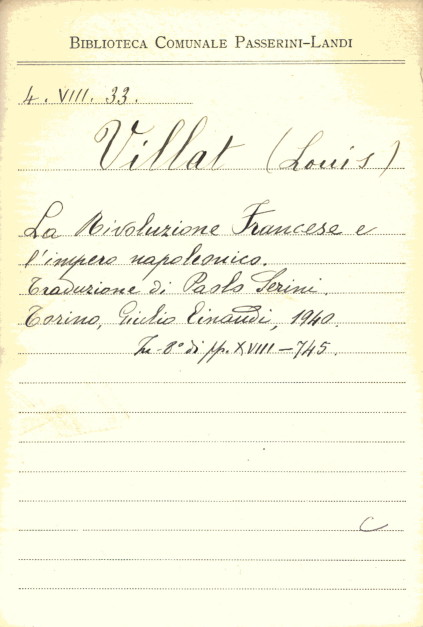 BIBLIOTECA COMUNALE PASSERINI-LANDI
4. VIII. 33.
Villat (Louis)
La Rivoluzione Francese e
l'impero napoleonico.
Traduzione di Paolo Serini.
Torino, Giulio Einaudi, 1940.
In-8° di pp. XVIII-745.
C